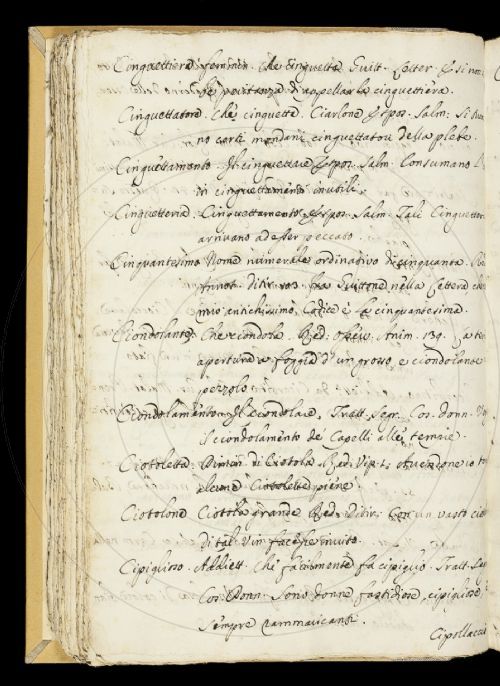 Cinguettiera feminin. Che cinguetta Guitt. Letter. E si
penitenza d'appellarla cinguettiera.
Cinguettatore. Che cinguetta. Ciarlone Espos. Salm. Si
no certi mondani cinguettatori della plebe.
Cinguettamento. Il cinguettare Espos. Salm. Consumano
in cinguettamenti inutili.
Cinguetteria. Cinguettamento. Espos. Salm. Tali
arrivano ad esser peccato.
Cinquantesimo Nome numerale ordinativo di cinquanta. Red.
Annot. Ditir. 103. fra Guittone nella Lettera
mio antichissimo Codice è la cinquantesima.
Ciondolante. Che ciondola. Red. Osserv. Anim. 139.
apertura a foggia d'un grosso, e ciondolante
pezzolo.
Ciondolamento. Il ciondolare. Tratt. Segr. Cos. donn.
Il ciondolamento de' Capelli alle tempie.
Ciotoletta. Diminu. di Ciotola Red. Vip.
alcune Ciotolette piene.
Ciotolone Ciotola grande Red. Ditir. Con un vasto
di tal vin facesse invito.
Cipiglioso. Addiett. Che facilmente fa cipiglio. Tratt.
Cos. Donn. Sono donne fastidiose, cipigliose
sempre rammaricanti.
Cipollaccia